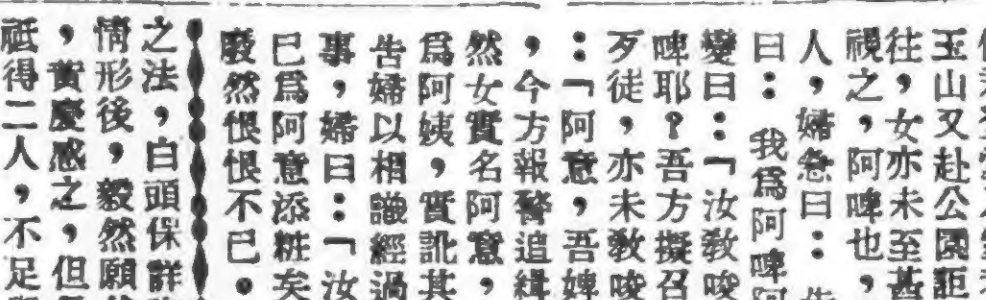 玉山又赴公園詎
往,女亦未至甚
視之,阿啤也,
人,婦急曰:
曰:我爲阿啤阿
變曰:「汝敎唆
啤耶?吾方擬召
歹徒,亦未敎唆
:「阿意,吾婢
,今方報警追緝
然女實名阿意,
爲阿姨,實訛其
告婦以相識經過
事,婦曰:「汝
巳爲阿意添粧矣
廢然悵恨不已。
之法,白頭保詳
情形後,毅然願
,黃慶感之,但
祇得二人,不足